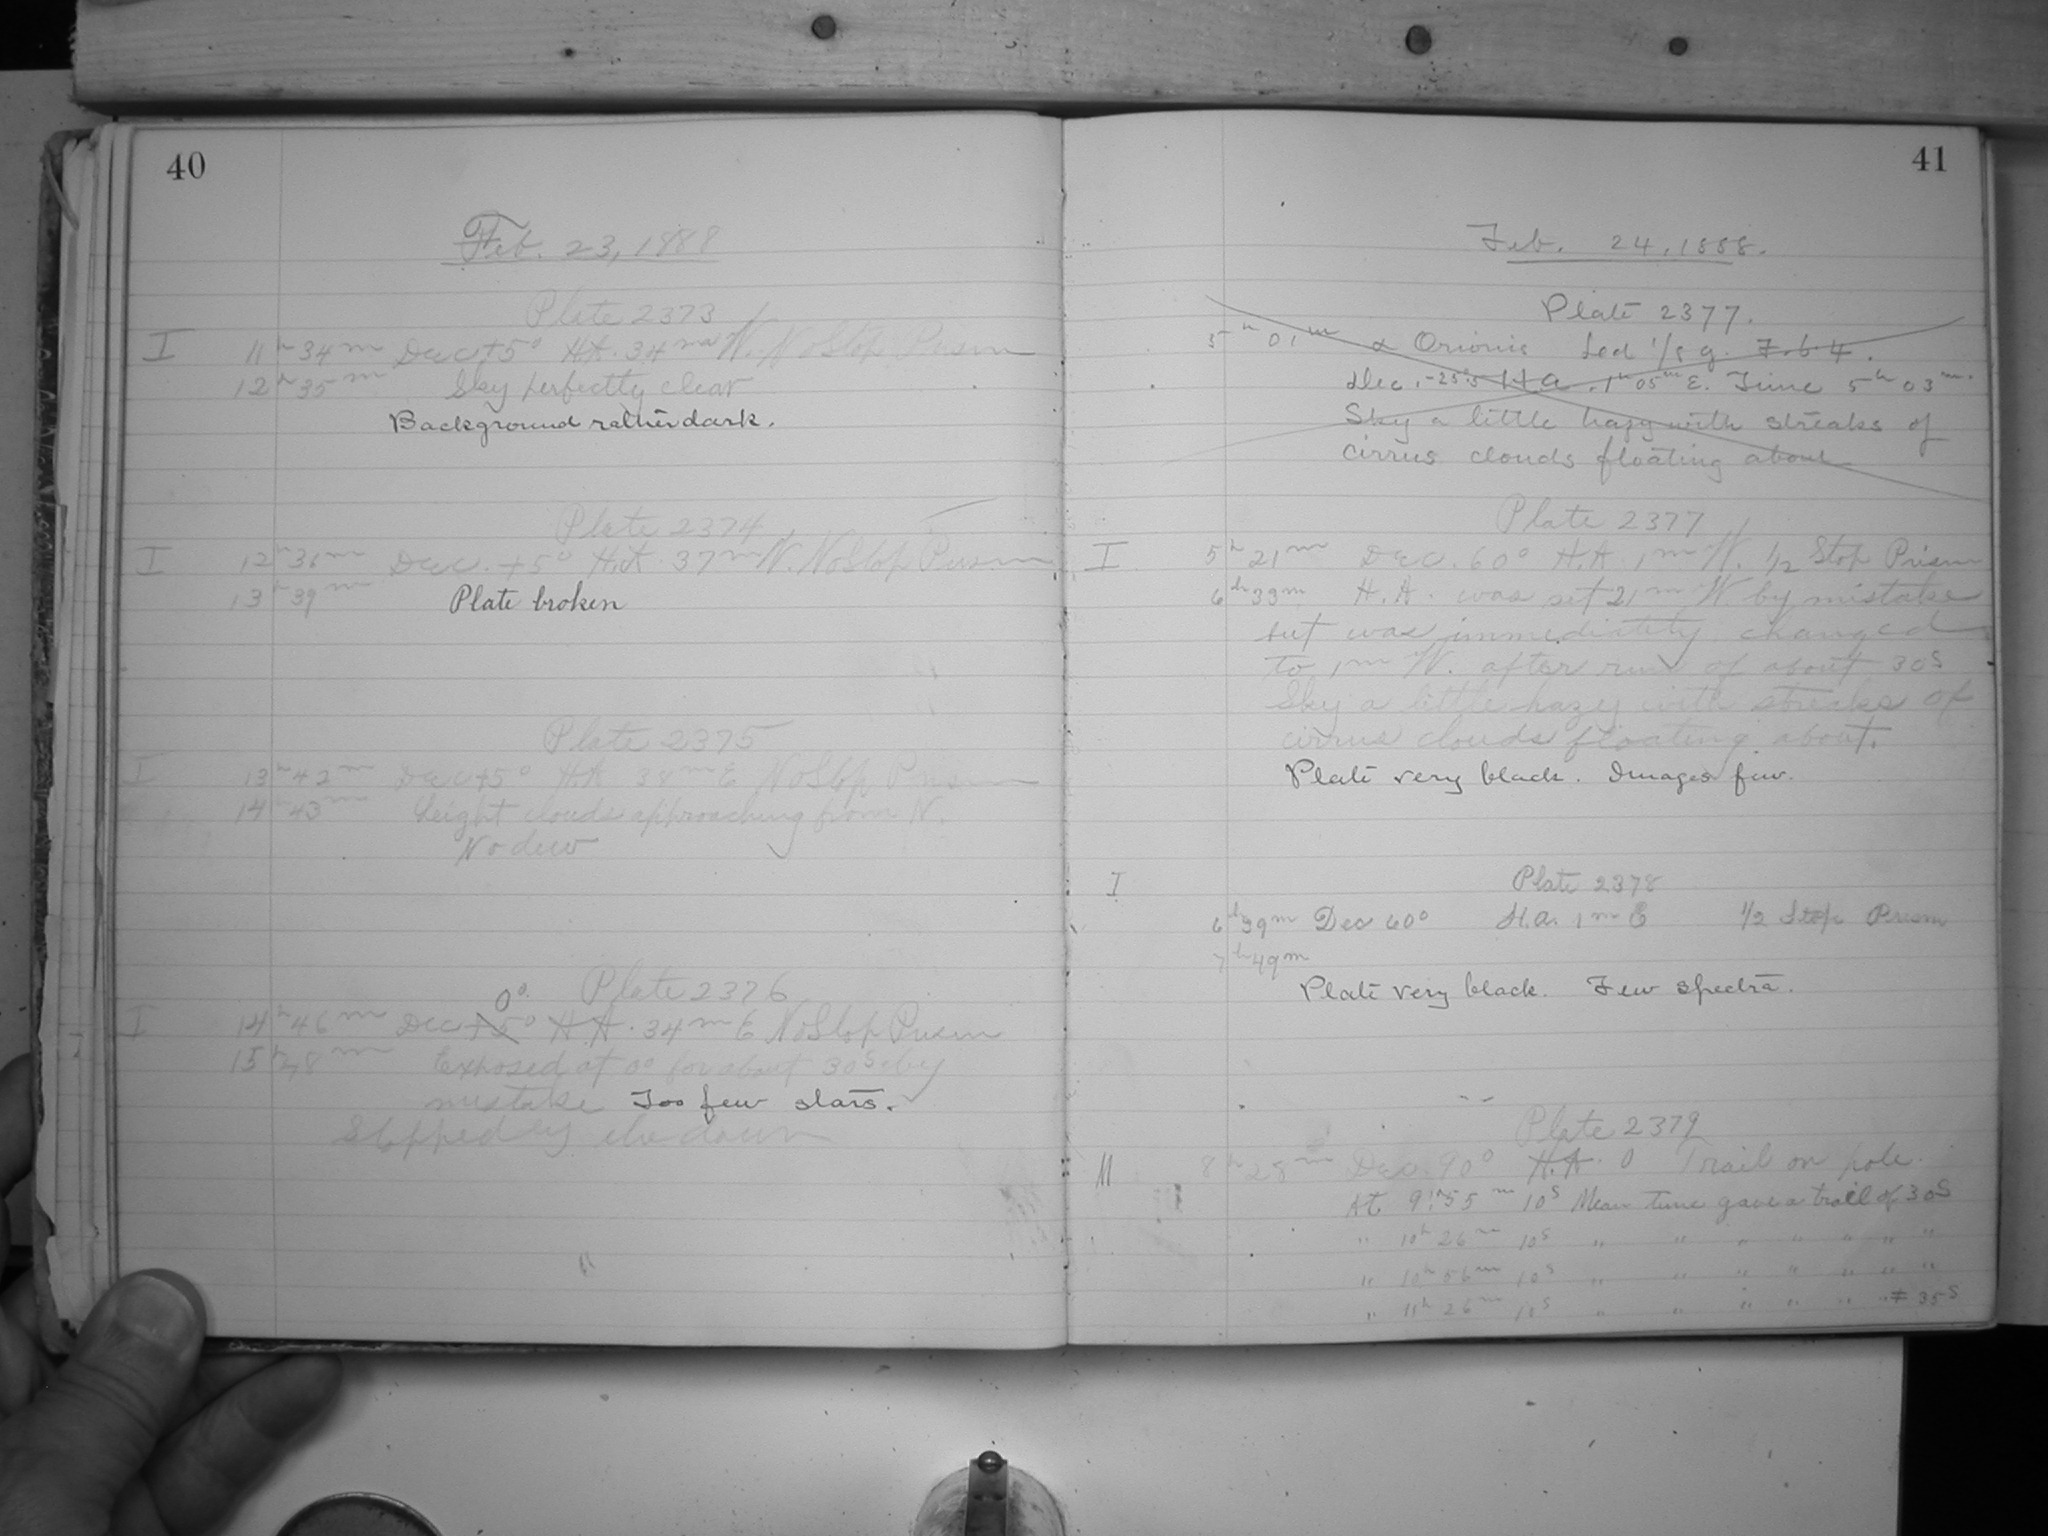 40
Feb. 23, 1888
Plate 2373
I 11h 34m Dec +5° H.A. 34m W. No Stop Prism
12h 35m Sky perfectly clear
Background rather dark.
Plate 2374
I 12h 36m Dec. +5° H.A. 37m W. No Stop Prism
13h 39m Plate broken
Plate 2375
I 13h 42m Dec +5° H.A. 38m E No Stop Prism
14h 43m Light clouds approaching from N.
No dew
Plate 2376
0°
I 14h 46m Dec +5° H.A. 34m E No Stop Prism
15h 48m Exposed at 0° for about 30s by
mistake Too few stars.
Stopped by the dawn
41
Feb. 24, 1888.
Plate 2377.
5h 01m α Orionis Led 1/8 g. 7.6.4.
Dec. -25°.5 H.a. 1h 05m E. Time 5h 03m.
Sky a little hazy with streaks of
cirrus clouds floating about
Plate 2377
I 5h 21m Dec. 60° H.A. 1m W. 1/2 Stop Prism
6h 33m H.A. was set 21m W. by mistake
but was immediately changed
to 1m W. after run of about 30s
Sky a little hazy with streaks of
cirrus clouds floating about.
Plate very black. Images few.
I Plate 2378
6h 39m Dec 60° H.a. 1m E 1/2 Stop Prism
7h 49m
Plate very black. Few spectra.
Plate 2379
II 8h 28m Dec. 90° H.A. 0 Trail on pole.
At 9h 55m 10s Mean time gave a trail of 30s
" 10h 26m 10s " " " " " " "
" 10h 56m 10s " " " " " " "
" 11h 26m 10s " " " " " " 35s